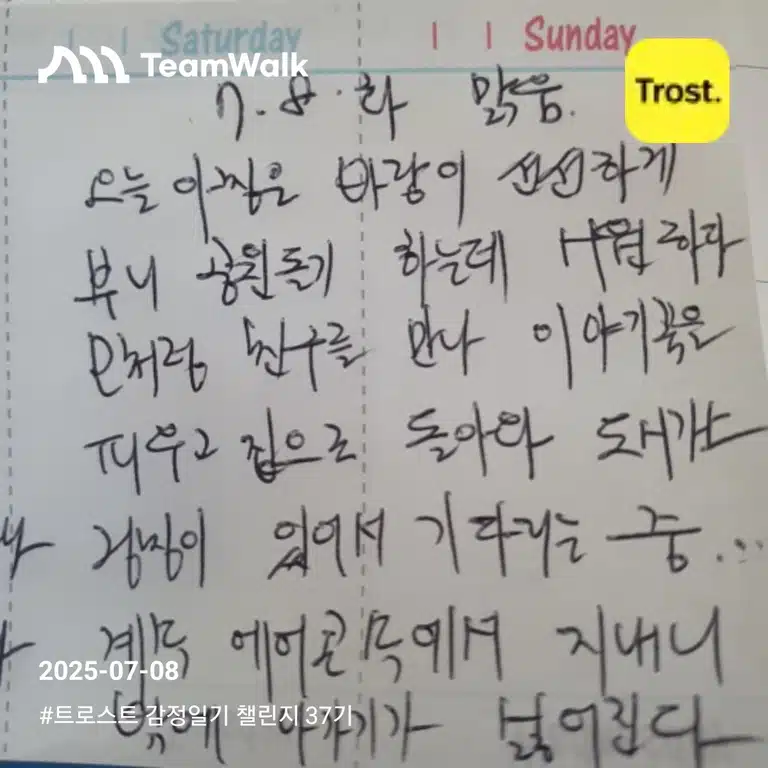 Saturday Sunday
TeamWalk
Trost.
7. 8. 화 맑음.
오늘 아침은 바람이 선선하게
부니 공원돌기 하는데 시원하다
모처럼 친구를 만나 이야기꽃을
피우고 집으로 돌아와
있어서 기다리는 중...
계속 에어콘 속에서 지내니
밖에 나가기가
2025-07-08
#트로스트 감정일기 챌린지 37기